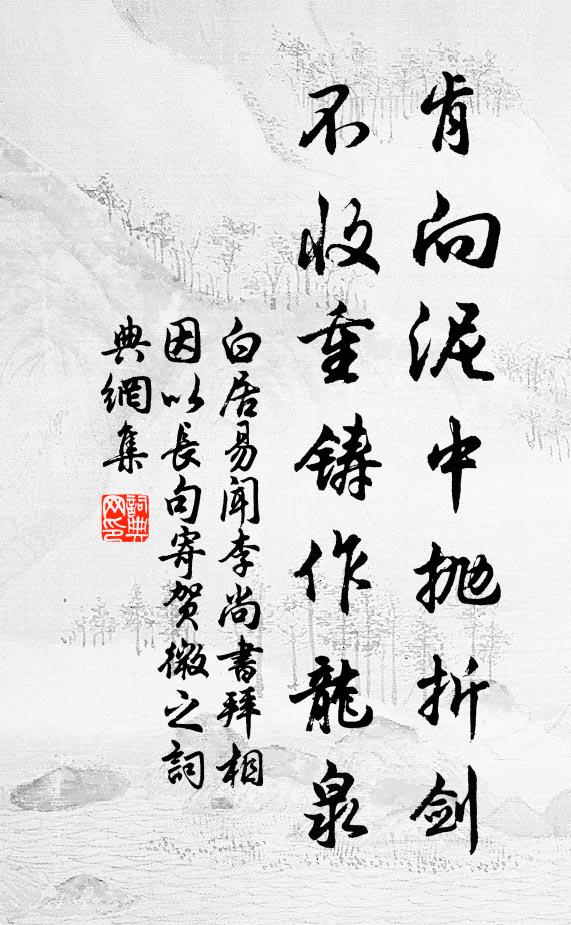 肯向泥中抛折剑
不收重铸作龍泉
白居易闻李尚書拜相
因以長句寄贺微之詞
典網集
詞典
网印